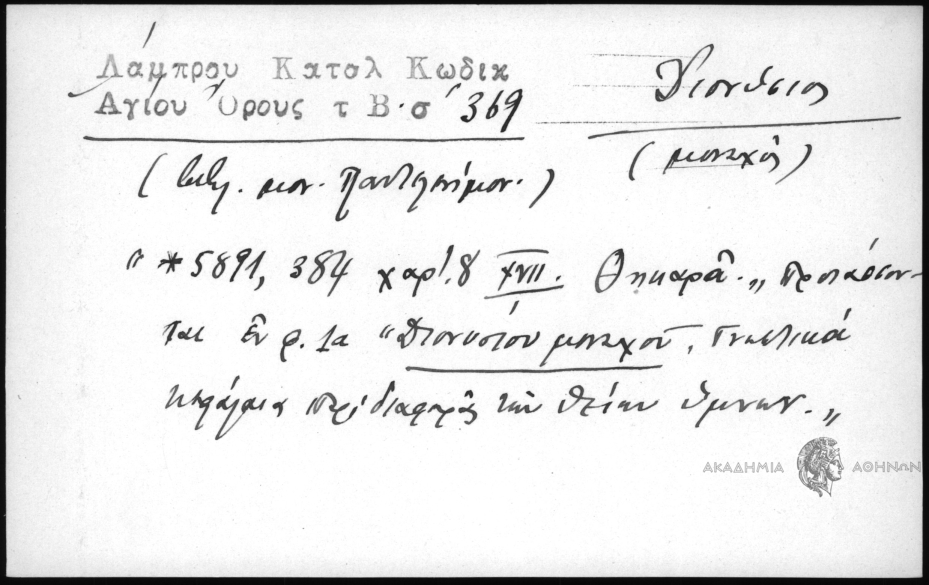 Λάμπρου Καταλ Κωδικ
Αγίου Όρους τ Β. σ 369
Διονύσιος
(μοναχός)
(Βιβλ. μον. Παντελεήμον.)
" *5891, 384 χαρτ. 8 XVII. Θηκαρᾶ. „ Προτάσσον-
ται ἐν φ. 1α "Διονυσίου μοναχοῦ, Γνωστικὰ
κεφάλαια περὶ διαφορᾶς τῶν θείων ὕμνων. „
ΑΚΑΔΗΜΙΑ ΑΘΗΝΩΝ